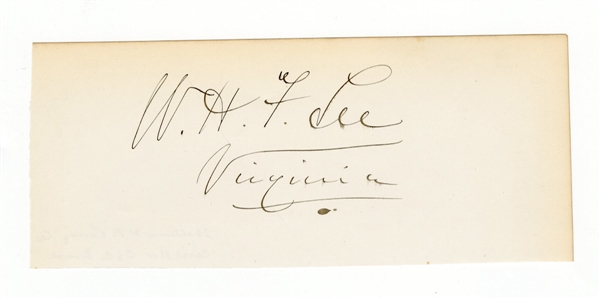 W. H. F. Lee
Virginia